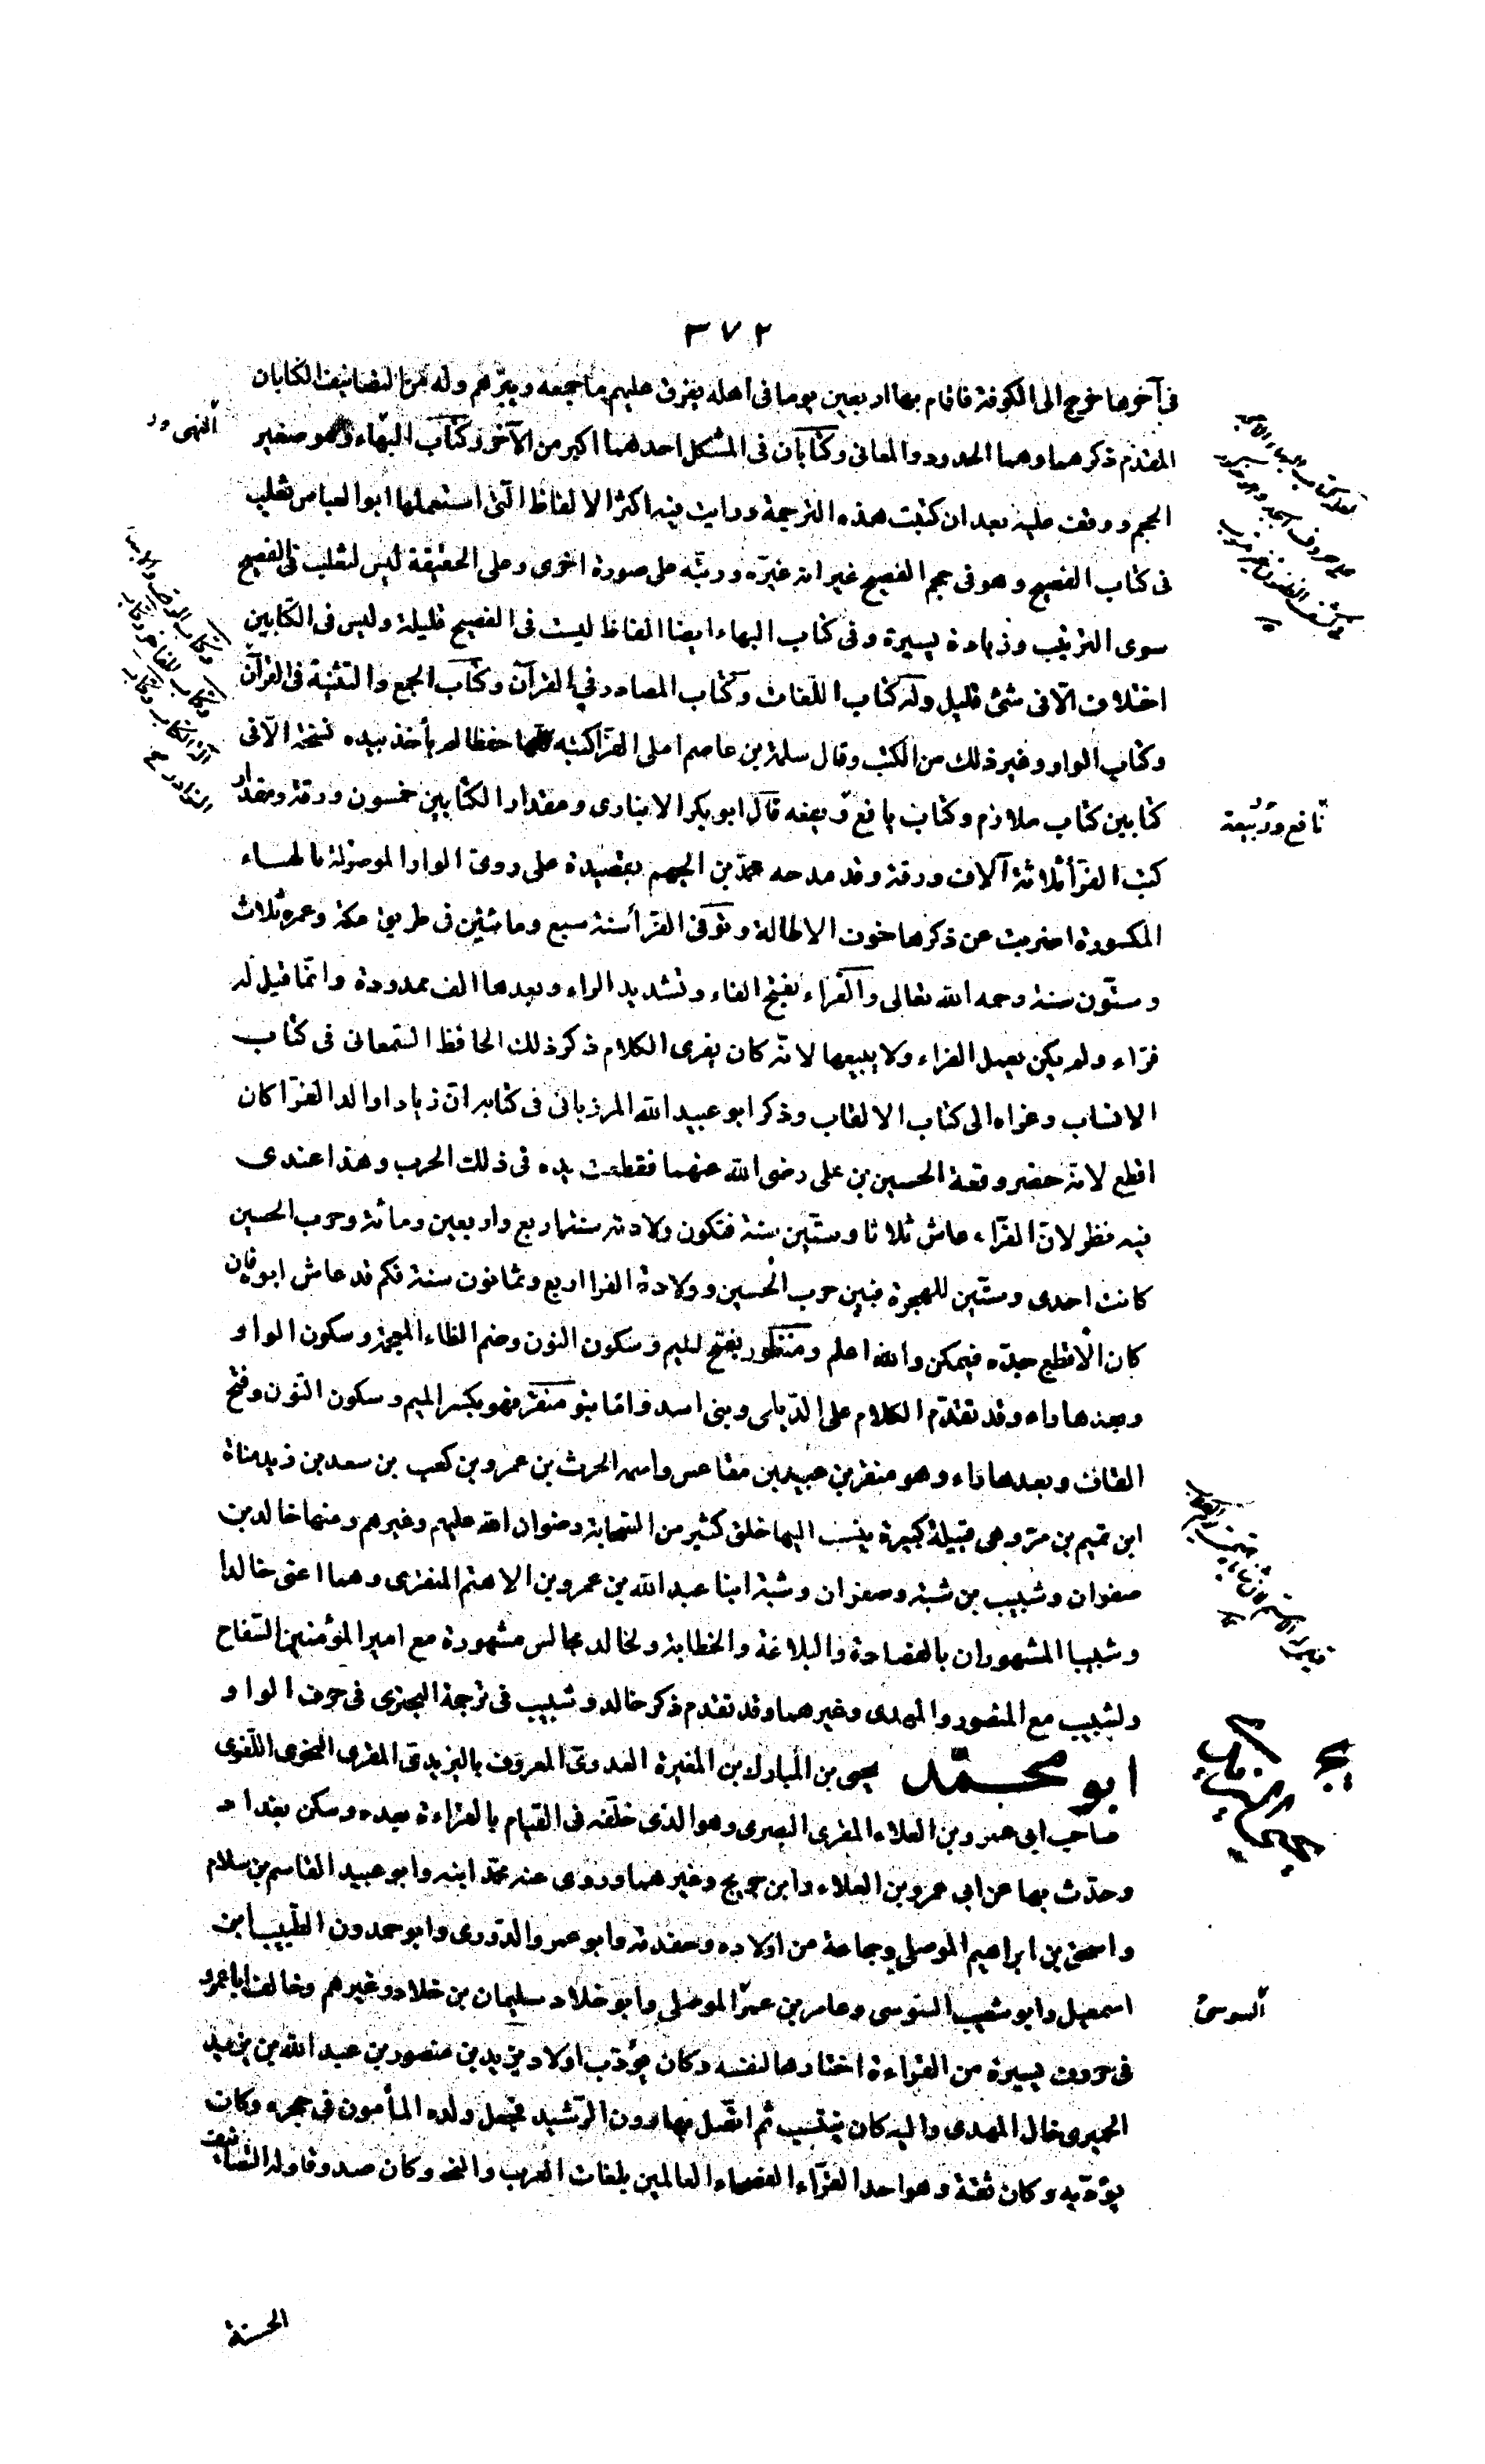 ٣٧٢
فى آخرها خرج الى الكوفة فاقام بها اربعين يوما فى اهله يفرق عليهم ما جمعه ويبرّهم وله من التصانيف الكتابان
المقدم ذكرهما وهما الحدود والمعانى وكتابان فى المشكل احدهما اكبر من الآخر وكتاب البهاء وهو صغير
الحجم ووقفت عليه بعد ان كتبت هذه الترجمة ورايت فيه اكثر الالفاظ الّتى استعملها ابو العباس ثعلب
فى كتاب الفصيح وهو فى حجم الفصيح غير انه غيّره ورتّبه على صورة اخرى وعلى الحقيقة ليس لثعلب فى الفصيح
سوى الترتيب وزيادة يسيرة وفى كتاب البهاء ايضا الفاظ ليست فى الفصيح قليلة وليس فى الكتابين
اختلاف الّا فى شئ قليل وله كتاب اللغات وكتاب المصادر في القرآن وكتاب الجمع والتثنية فى القرآن
وكتاب الواو وغير ذلك من الكتب وقال سلمة بن عاصم املى الفرّا كتبه كلها حفظا لم يأخذ بيده نسخة الّا فى
كتابين كتاب ملازم وكتاب يافع ويفعه قال ابو بكر الانبارى ومقدار الكتابين خمسون ورقة ومقدار
كتب الفرّأ ثلاثة آلاف ورقة وقد مدحه محمّد بن الجهم بقصيدة على روىّ الواو الموصولة بالهاء
المكسورة اضربت عن ذكرها خوف الاطالة وتوفى الفرّأ سنة سبع ومائتين فى طريق مكة وعمره ثلاث
وستّون سنة رحمه الله تعالى والفراء بفتح الفاء وتشديد الراء وبعدها الف ممدودة وانّما قيل له
فرّاء ولم يكن يعمل الفراء ولا يبيعها لانّه كان يفرى الكلام ذكر ذلك الحافظ السّمعانى فى كتاب
الانساب وعزاه الى كتاب الالقاب وذكر ابو عبيد الله المرزبانى فى كتابه انّ زيادا والد الفرّا كان
اقطع لانه حضر وقعة الحسين بن على رضى الله عنهما فقطعت يده فى ذلك الحرب وهذا عندى
فيه نظر لانّ الفرّاء عاش ثلاثا وستّين سنة فتكون ولادته سنة اربع واربعين ومائة وحرب الحسين
كانت احدى وستّين للهجرة فبين حرب الحسين وولادة الفرا اربع وثمانون سنة فكم قد عاش ابوه فان
كان الاقطع جدّه فيمكن والله اعلم ومنظور بفتح الميم وسكون النون وضم الظاء المعجمة وسكون الواو
وبعدها راء وقد تقدّم الكلام على الدّيلمى وبنى اسد وامّا بنو منقر فهو بكسر الميم وسكون النّون وفتح
القاف وبعدها راء وهو منقر بن عبيد بن مقاعس واسمه الحرث بن عمرو بن كعب بن سعد بن زيد مناة
ابن تميم بن مرّ وهى قبيلة كبيرة ينسب اليها خلق كثير من الصّحابة رضوان الله عليهم وغيرهم ومنها خالد بن
صفوان وشبيب بن شبة وصفوان وشبة ابنا عبد الله بن عمرو بن الاهتم المنقرى وهما اعنى خالدا
وشبيبا المشهوران بالفصاحة والبلاغة والخطابة ولخالد مجالس مشهورة مع امير المؤمنين السّفاح
ولشبيب مع المنصور والمهدى وغيرهما وقد تقدم ذكر خالد وشبيب فى ترجمة البحترى فى حرف الواو
ابو محمّد يحيى بن المبارك بن المغيرة العدوىّ المعروف باليزيدىّ المقرى النحوى اللّغوى
صاحب ابى عمرو بن العلاء المقرى البصرى وهو الذى خلّفه فى القيام بالقراءة بعده وسكن بغداد
وحدّث بها عن ابى عمرو بن العلاء وابن جريج وغيرهما وروى عنه محمّد ابنه وابو عبيد القاسم بن سلام
واسحق بن ابراهيم الموصلى وجماعة من اولاده وحفدته وابو عمر والدّورى وابو حمدون الطّيب ابن
اسمعيل وابو شعيب السّوسى وعامر بن عمرّ الموصلى وابو خلاد سليمان بن خلاد وغيرهم وخالف ابا عمرو
فى حروف يسيرة من القراءة اختارها لنفسه وكان يؤدّب اولاد يزيد بن منصور بن عبد الله بن يزيد
الحميرى خال المهدى واليه كان ينتسب ثم اتّصل بهارون الرّشيد فجعل ولده المأمون فى حجره وكان
يؤدّبه وكان ثقة وهو احد القرّاء الفصحاء العالمين بلغات العرب والنحو وكان صدوقا وله التصانيف
الحسنة
النهى ور
يافع ويفعة
السوسىّ